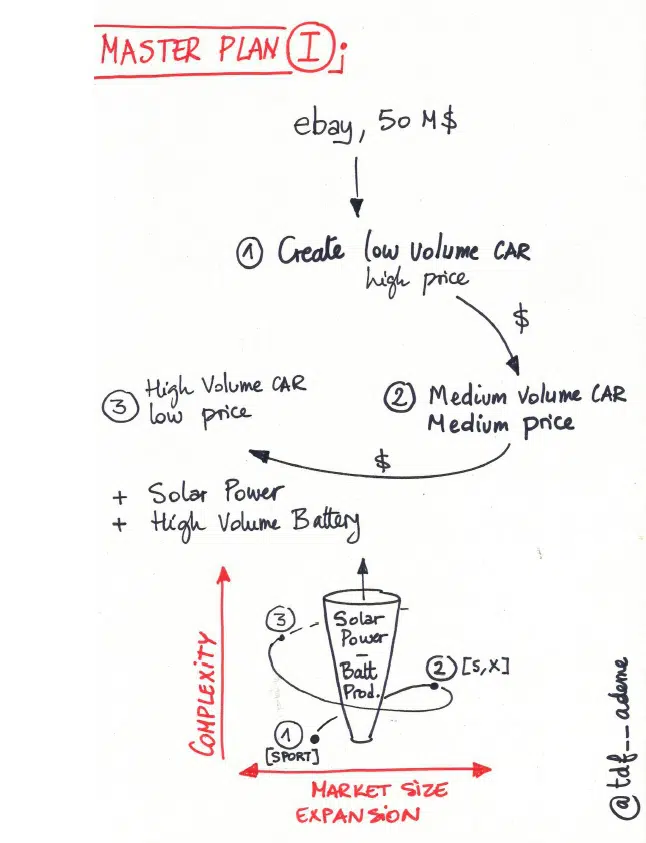 MASTER PLAN I;
ebay, 50 M$
① Create low volume CAR
high price
$
② Medium volume CAR
Medium price
③ High Volume CAR
low price
$
+ Solar Power
+ High Volume Battery
COMPLEXITY
③
Solar
Power
–
Batt
Prod.
② [S,X]
① [SPORT]
MARKET SIZE
EXPANSION
@tdf__ademe